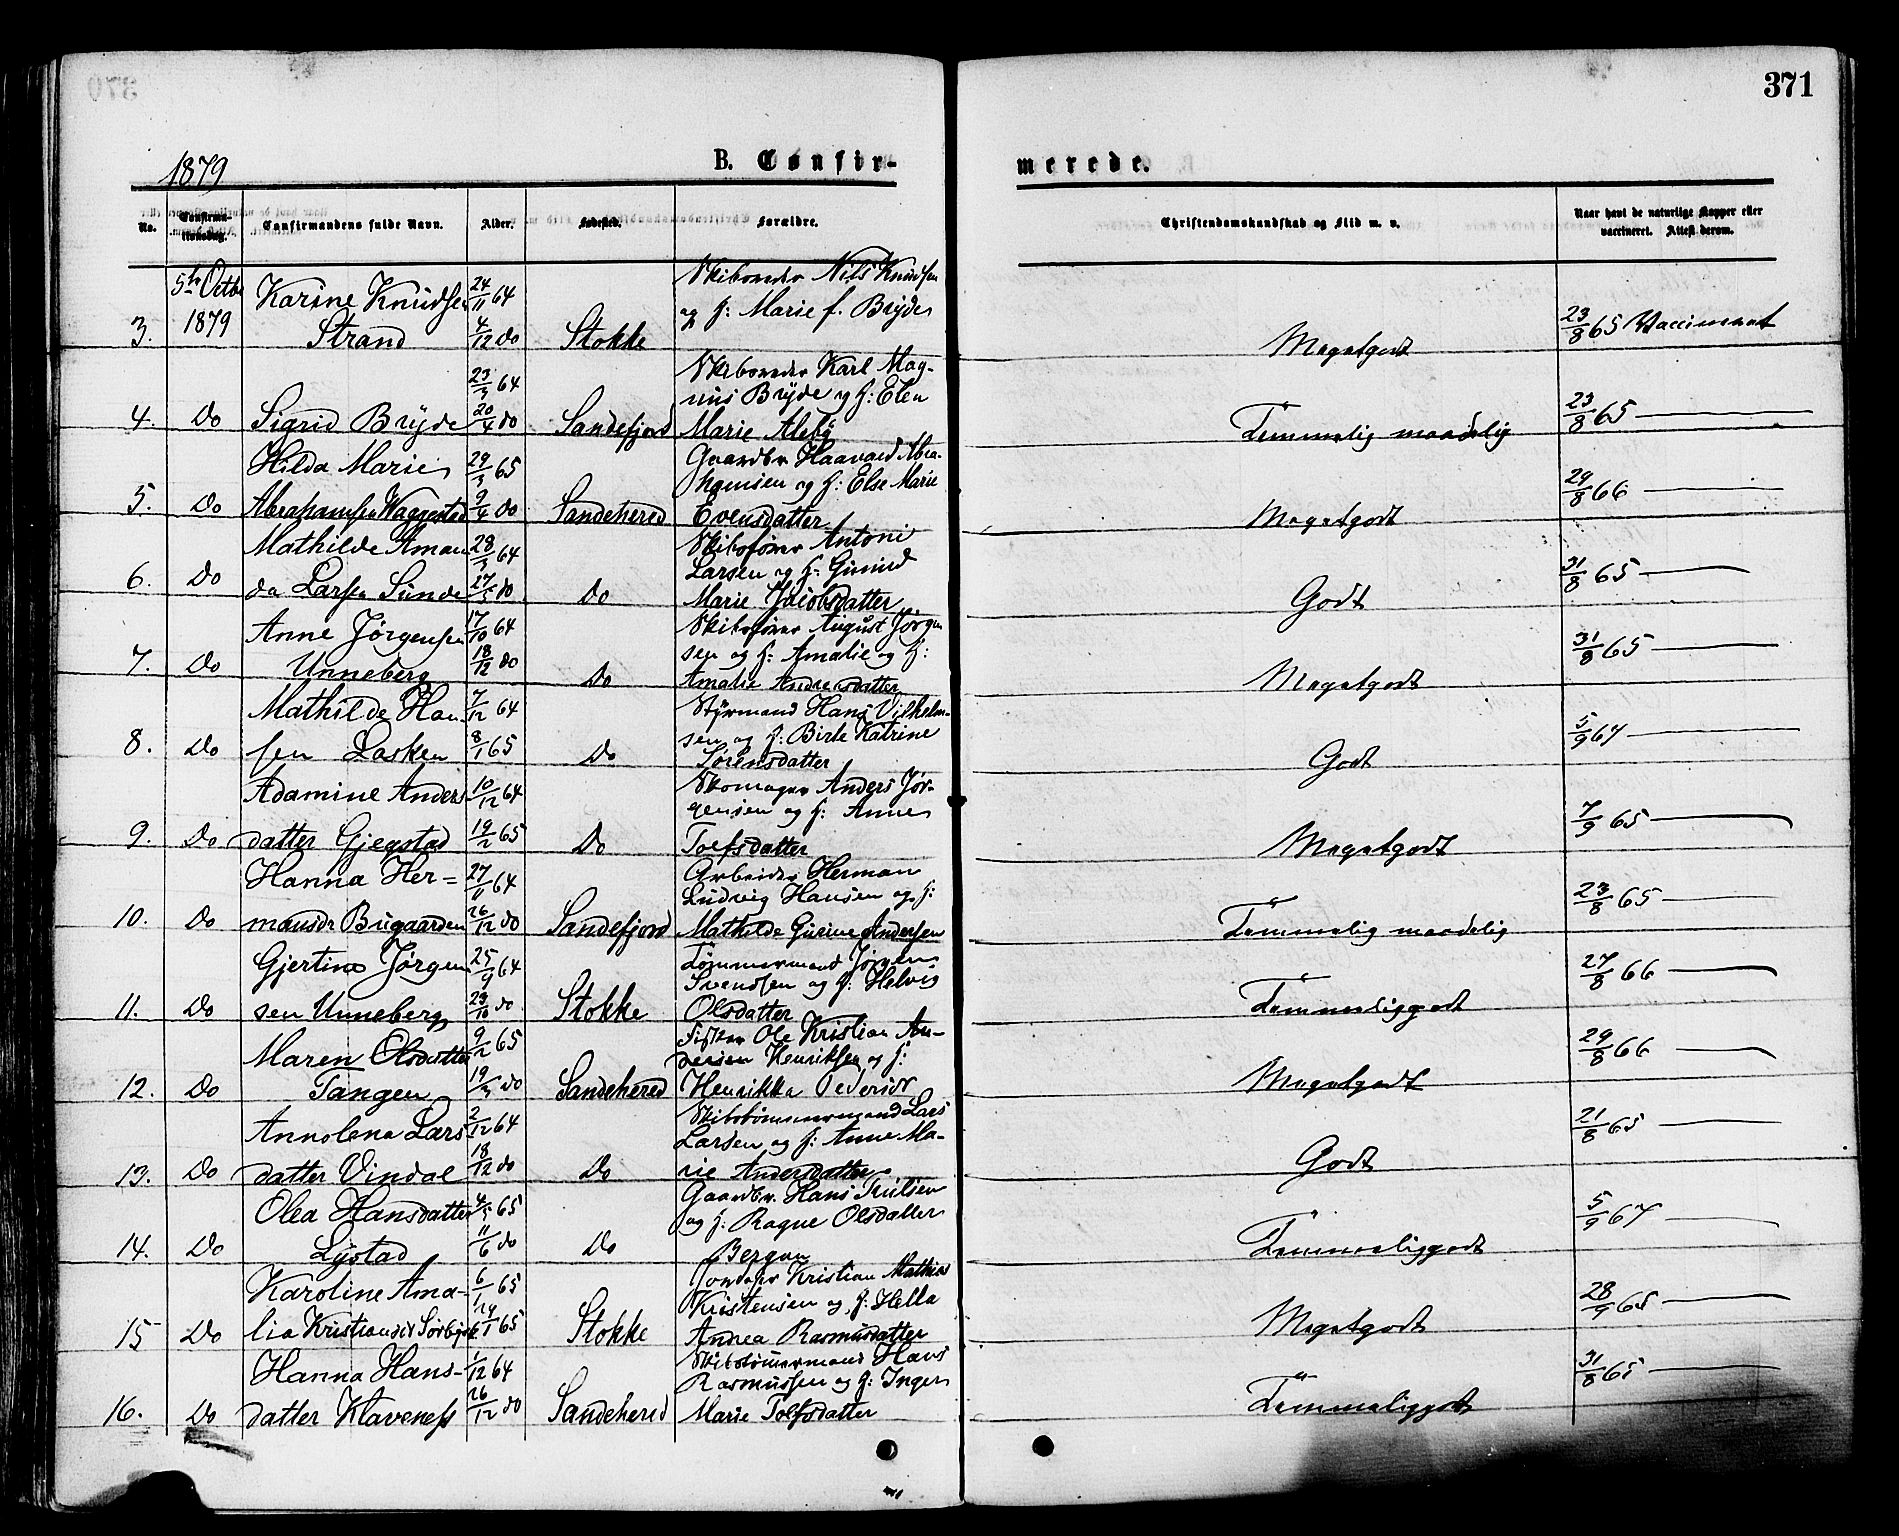 371
1879
B. Confir-
merede.
No.
Confirma-
tionsdag.
Confirmandens fulde Navn.
Alder.
Fødested.
Forældre.
Christendomskundskab og Flid m. v.
Naar havt de naturlige Kopper eller
vaccineret. Attest derom.
3.
5te Octbr
1879
Karine Knudsen
Strand
24/11 64
4/12 do
Stokke
Skibsreder Nils Knudsen
og h: Marie f. Bryde
Megetgodt
23/8 65 Vaccineret
4.
Do
Sigrid Bryde
23/3 64
20/4 do
Sandefjord
Skibsreder Karl Mag-
nus Bryde og h: Elen
Marie
Temmelig maadelig
23/8 65
5.
Do
Hilda Marie
Abrahamsen Waggestad
29/3 65
9/4 do
Sandeherred
Gaardbr. Haavard Abra-
hamsen og h: Else Marie
Evensdatter
Megetgodt
29/8 66
6.
Do
Mathilde Aman
da Larsen Sunde
28/3 64
27/5 do
Do
Skibsfører Antoni
Larsen og h: Gunild
Marie Jacobsdatter
Godt
31/8 65
7.
Do
Anne Jørgensen
Unneberg
17/10 64
18/12 do
Do
Skibsfører August Jørgen
sen og h: Amalie og h:
Amalie Andersdatter
Megetgodt
31/8 65
8.
Do
Mathilde Han
sen Lasken
7/12 64
8/1 65
Do
Styrmand Hans Vilhelm-
sen og h: Birte Katrine
Sørensdatter
Godt
5/9 67
9.
Do
Adamine Anders
datter Gjegstad
10/12 64
19/2 65
Do
Skomager Anders Jør-
gensen og h: Anne
Toefsdatter
Megetgodt
7/9 65
10.
Do
Hanna Her-
mansdr Bugaarden
27/11 64
26/12 do
Sandefjord
Arbeider Herman
Ludvig Hansen og h:
Mathilde Gurine Andersen
Temmelig maadelig
23/8 65
11.
Do
Gjertine Jørgen
sen Unneberg
25/9 64
23/10 do
Stokke
Tømmermand Jørgen
Svendsen og h: Helvig
Olsdatter
Temmeliggodt
27/8 66
12.
Do
Maren Olsdatter
Tangen
9/2 65
19/3 do
Sandeherred
Fisker Ole Kristian An-
dersen Henriksen og h:
Henrikka Pedersdr
Megetgodt
29/8 66
13.
Do
Annolena Lars
datter Vindal
2/12 64
18/12 do
Do
Skibstømmermand Lars
Larsen og h: Anne Ma-
rie Andersdatter
Godt
21/8 65
14.
Do
Olea Hansdatter
Lystad
4/5 65
11/6 do
Do
Gaardbr. Hans Trulsen
og h: Ragne Olsdatter
Bergan
Temmeliggodt
5/9 67
15
Do
Karoline Ama-
lia Kristiansdr Sørby
6/1 65
Stokke
Kristian Mathias
Kristensen og h: Hella
Andrea Rasmusdatter
Megetgodt
28/9 65
16.
Do
Hanna Hans-
datter Klaveness
1/12 64
26/12 do
Sandeherred
Skibstømmermand Hans
Rasmussen og h: Inger
Marie Tolfsdatter
Temmeliggodt
31/8 65